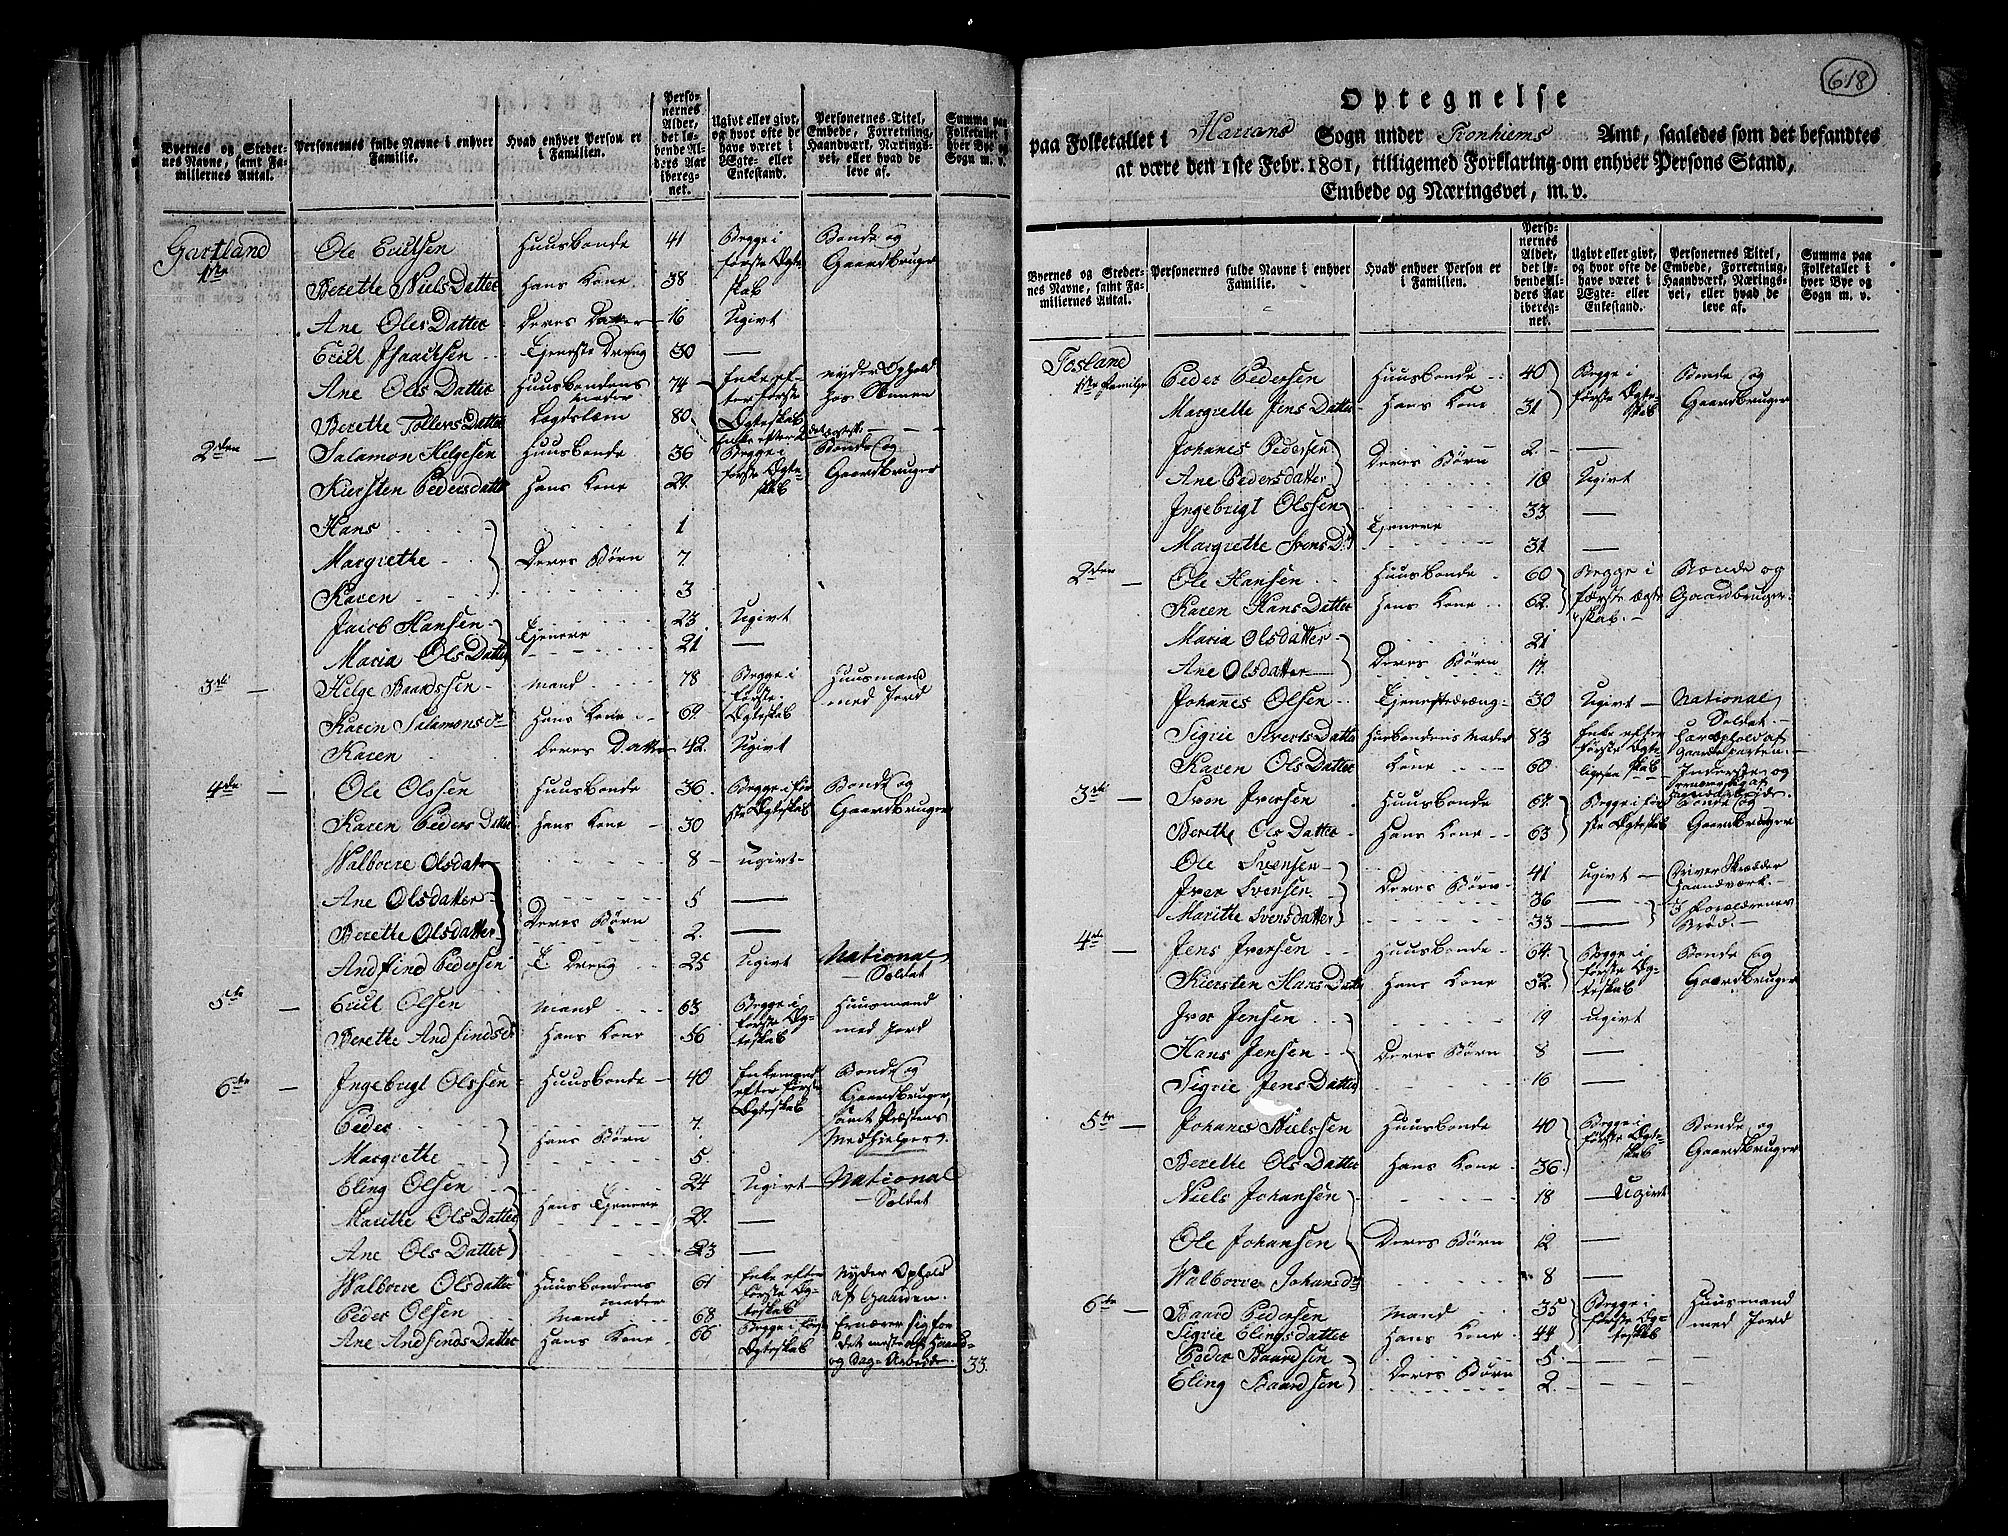 Byernes og Steder-
nes Navne, samt Fa-
miliernes Antal.
Personernes fulde Navne i enhver
Familie.
Hvad enhver Person er
i Familien.
Perso-
nernes
Alder,
det lø-
bende Al-
ders Aar
iberegnet.
Ugivt eller givt,
og hvor ofte de
have været i
Ægte- eller
Enkestand.
Personernes Titel,
Embede, Forretning,
Haandværk, Nærings-
vei, eller hvad de
leve af.
Summa paa
Folketallet i
hver Bye og
Sogn m. v.
Gartland 1ste Ole Erichsen Huusbonde 41 Begge i første Ægteskab Bonde og Gaardbruger
Berethe Niels Datter Hans Kone 38
Ane Ols Datter Deres Datter 16 Ugivt
Erich Isaachsen Tjeneste Dreng 30 —
Ane Ols Datter Huusbondens moder 74 Enke efter første Ægteskab nyder Ophold hos Sønnen
Berethe Tollens Datter Lægdslem 80
2den — Salamon Helgesen Huusbonde 36 Begge i første Ægteskab Bonde og Gaardbruger
Kiersten Pedersdatter Hans Kone 29
Hans 1
Margrethe Deres Børn 7
Karen 3
Jacob Hansen Tjenere 23 Ugivt
Maria Ols Datter 21 —
3die — Helge Baardssen Mand 78 Begge i første Ægteskab Huusmand med Jord
Karen Salamonsdr Hans Kone 69
Karen Deres Datter 42 Ugivt
4de — Ole Olssen Huusbonde 36 Begge i første Ægteskab Bonde og Gaardbruger
Karen Peders Datter Hans Kone 30
Walborre Olsdatr 8 ugivt
Ane Olsdatter 5 —
Berethe Olsdatter Deres Børn 2 —
Andfind Pedersen T Dreng 25 Ugivt National Soldat
5te — Erich Olsen Mand 63 Begge i første Ægteskab Huusmand med Jord
Berethe Andfindsdr Hans Kone 56
6te — Ingebrigt Olssen Huusbonde 40 Enkemand efter første Ægteskab Bonde og Gaardbruger, samt Præstens Medhielper
Peder Hans Børn 7
Margrethe 5
Eling Olsen Hans Tjenere 24 Ugivt National Soldat
Marithe Ols Datter 29 —
Ane Ols Datter 23 —
Walborre Olsdatter Huusbondens moder 61 Enke efter første Ægteskab Nyder Ophold af Gaarden.
Peder Olsen Mand 68 Begge i første Ægteskab Ernærer sig for det meste af Haand- og Dag-Arbeide
Ane Andfinds Datter Hans Kone 66
33
618
Optegnelse
paa Folketallet i Harrans Sogn under Tronhiems Amt, saaledes som det befandtes
at være den 1ste Febr. 1801, tilligemed Forklaring om enhver Persons Stand,
Embede og Næringsvei, m. v.
Byernes og Steder-
nes Navne, samt Fa-
miliernes Antal.
Personernes fulde Navne i enhver
Familie.
Hvad enhver Person er
i Familien.
Perso-
nernes
Alder,
det lø-
bende Al-
ders Aar
iberegnet.
Ugivt eller givt,
og hvor ofte de
have været i
Ægte- eller
Enkestand.
Personernes Titel,
Embede, Forretning,
Haandværk, Nærings-
vei, eller hvad de
leve af.
Summa paa
Folketallet i
hver Bye og
Sogn m. v.
Fosland 1ste Familie Peder Pedersen Huusbonde 40 Begge i første Ægteskab Bonde og Gaardbruger
Margrethe Jens Datter Hans Kone 31
Johanes Pedersen Deres Børn 2 —
Ane Pedersdatter 10 Ugivt
Ingebrigt Olssen Tjenere 33 —
Margrethe Svens Dr 31 —
2den — Ole Hansen Huusbonde 60 Begge i første Ægteskab Bonde og Gaardbruger
Karen Hans Datter Hans Kone 62
Maria Olsdatter 21
Ane Olsdatter Deres Børn 17
Johannes Olsen Tjenestedræng 30 Ugivt National Soldat
Sigrie Siverts Datter Husbondens Moder 83 Enke efter første Ægte Har Ophold af Gaardeparten.
Karen Ols Datter Kone 60 Inderste og
3die — Sven Iversen Huusbonde 67 Begge i første Ægteskab Bonde og Gaardbruger
Berethe Ols Datter Hans Kone 63
Ole Svensen 41 Ugivt Driver Skrædder Haandværk.
Iver Svensen Deres Børn 36 —
Marithe Svensdatter 33 — I Forældrenes Brød.
4de — Jens Iversen Huusbonde 64 Begge i første Ægteskab Bonde og Gaardbruger
Kiersten Hans Datter Hans Kone 52
Iver Jensen 19 ugivt
Hans Jensen Deres Børn 8 —
Sigrie Jens Datter 16 —
5te — Johanes Nielssen Huusbonde 40 Begge i første Ægteskab Bonde og Gaardbruger
Berethe Ols Datter Hans Kone 36
Niels Johansen 18 — Ugivt
Ole Johansen Deres Børn 12 —
Walborre Johansdr 8 —
6te — Baard Pedersen Mand 35 Begge i første Ægteskab Huusmand med Jord
Sigrie Elingsdatter Hans Kone 44
Peder Baardsen 5
Eling Baardsen Deres Børn 2